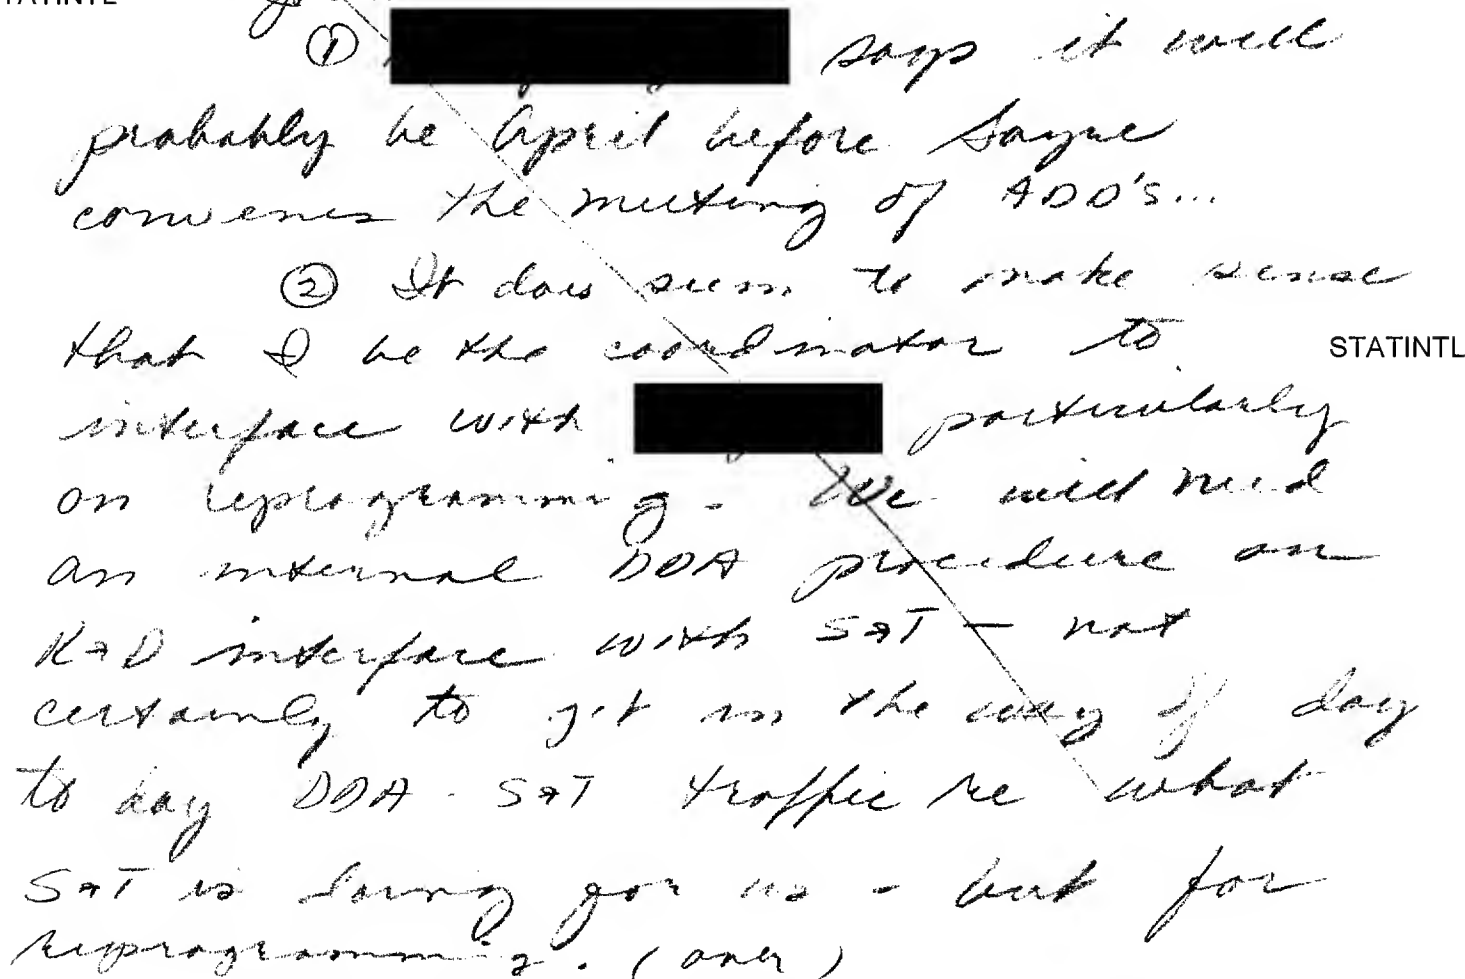 ① says it will
probably be April before Sayre
convenes the meeting of ADD'S...
② It does seem to make sense
that I be the coordinator to
STATINTL
interface with particularly
on reprogramming. We will need
an internal DDA procedure on
R&D interface with S&T – not
certainly to get in the way of day
to day DDA - S&T traffic re what
S&T is doing for us - but for
reprogramming. (over)